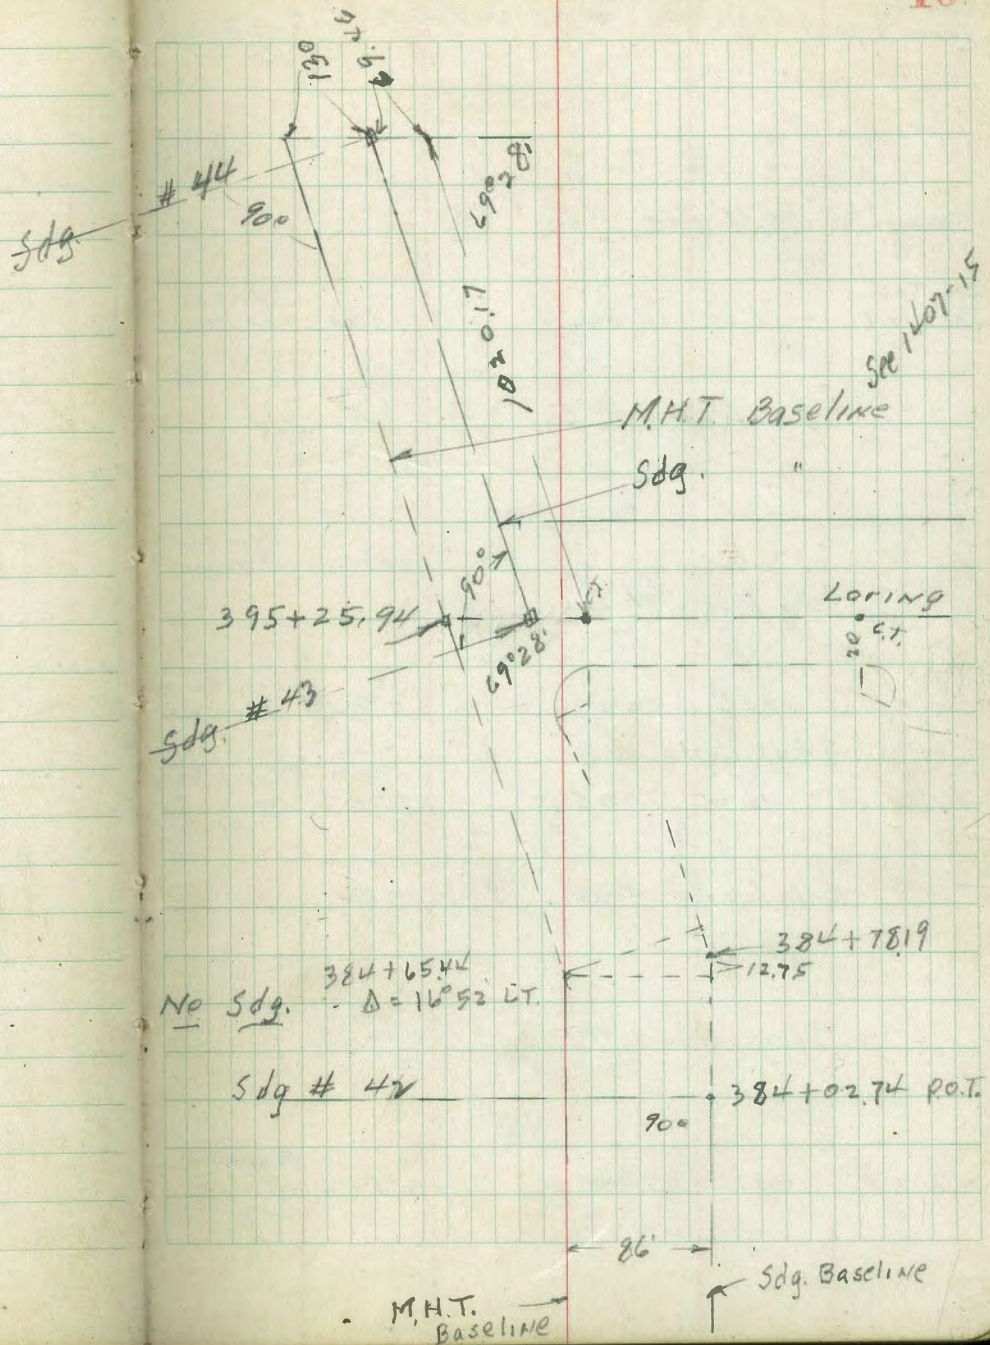 130
# 44
Sdg.
90°
69°28'
1020.17
See 1407-15
M.H.T. Baseline
Sdg. "
90°
395+25.94
Loring
C.T.
20
69°28'
# 43
Sdg.
384+78.19
12.75
384+65.44
No Sdg. Δ = 16°52 LT.
Sdg # 42
384+02.74 P.O.T.
90°
86'
Sdg. Baseline
M.H.T.
Baseline